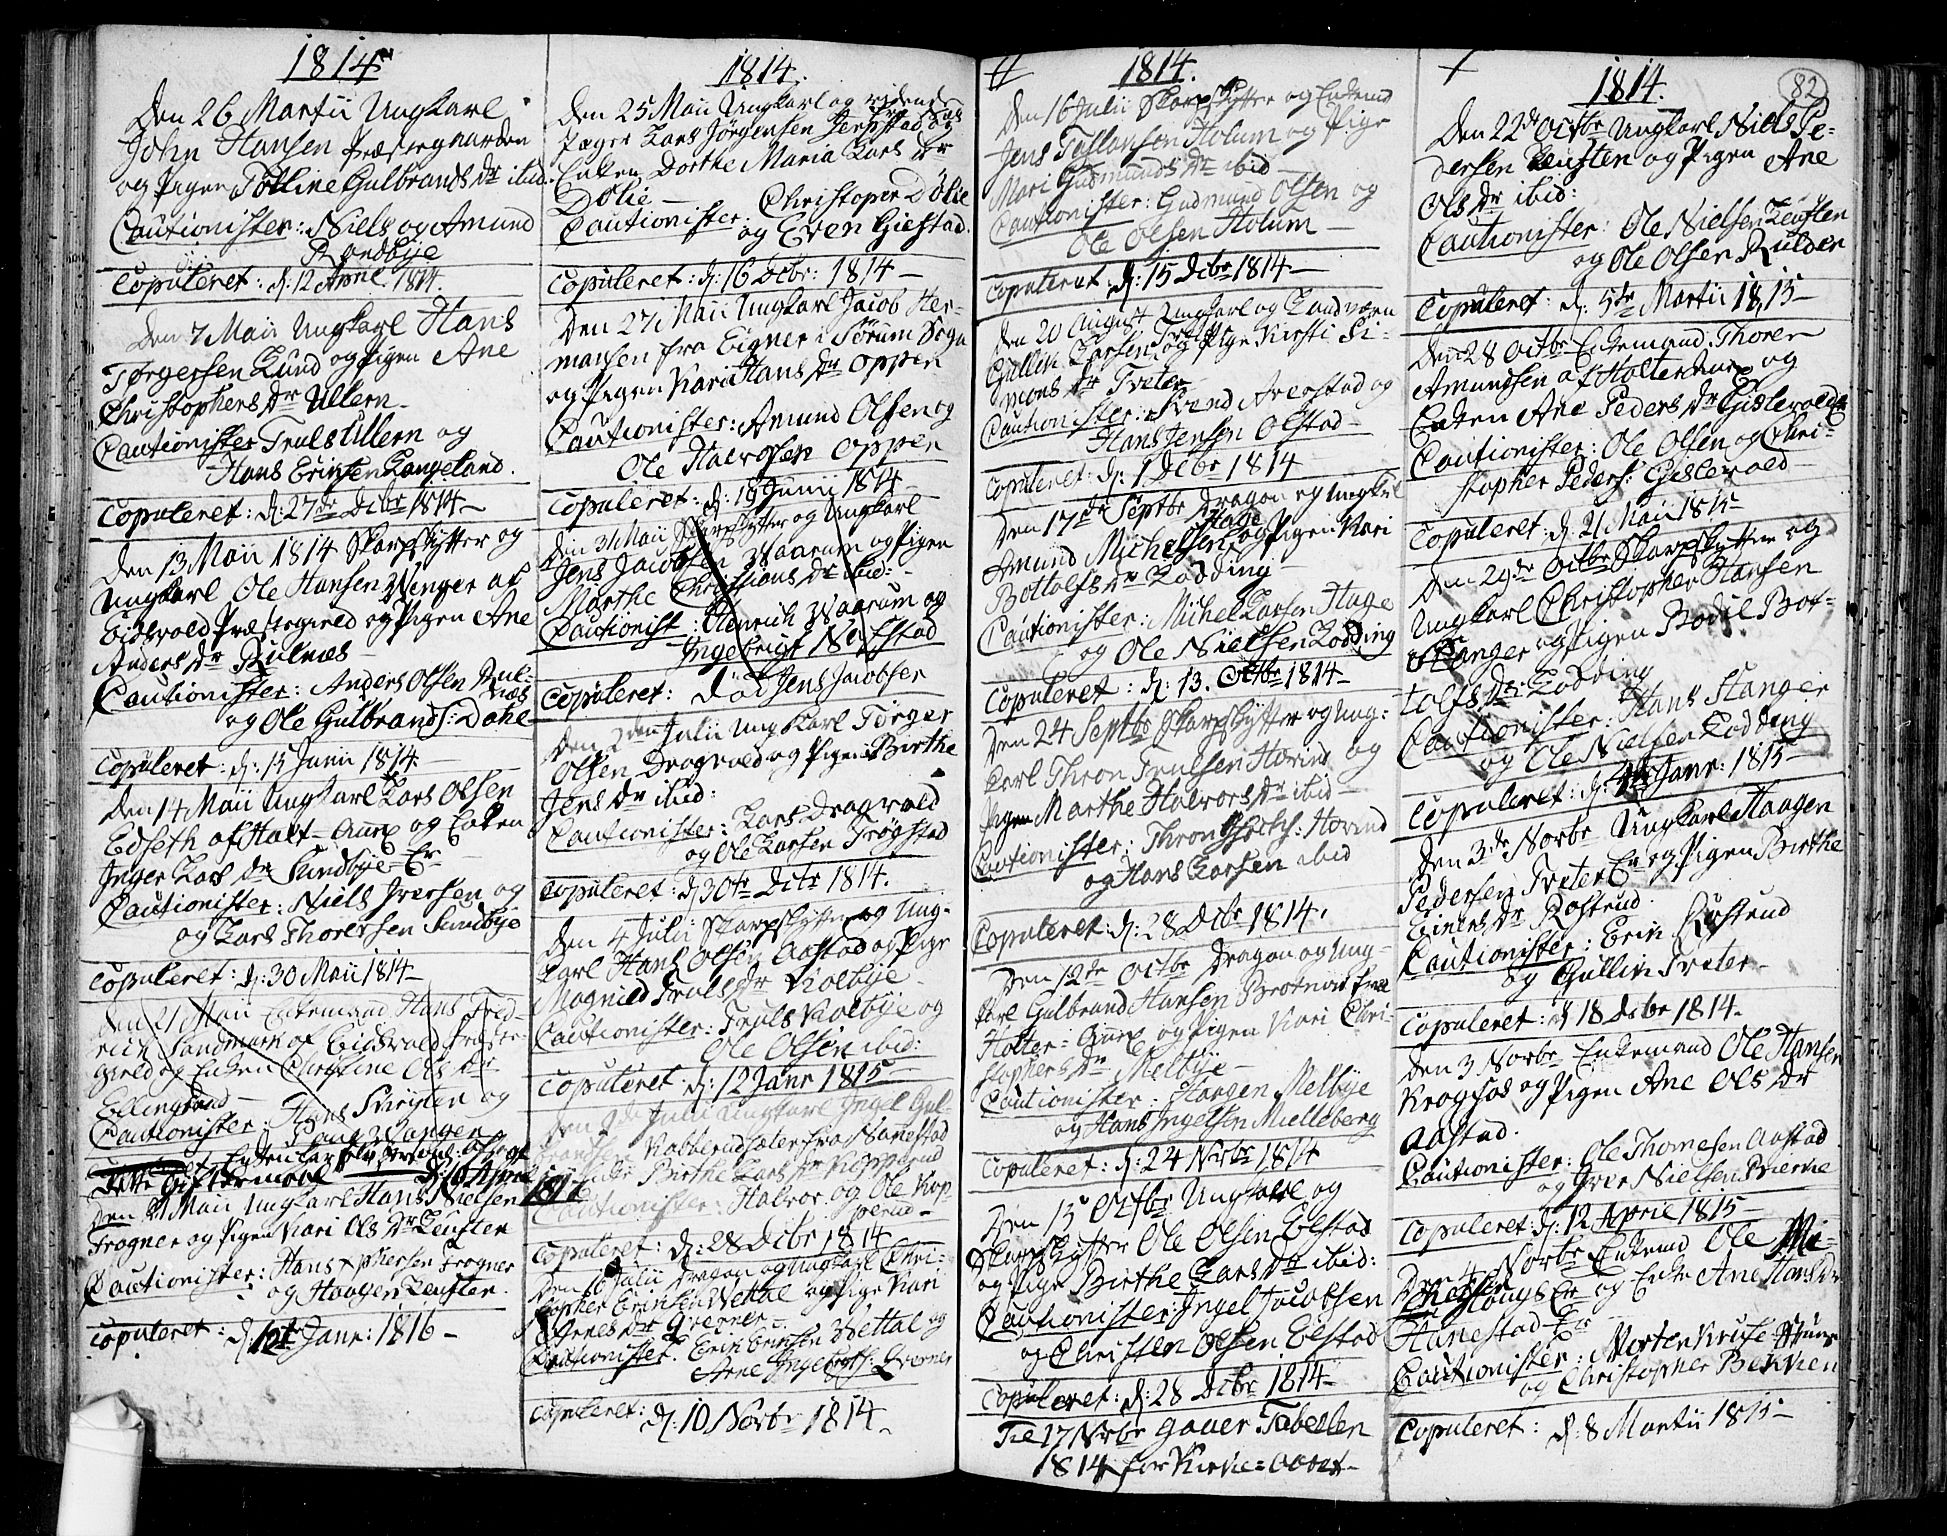 1814
Den 26 Martii Ungkarl
John Hansen Præstegaarden
og Pigen Tolline Gulbrands Dr ibid.
Cautionister: Niels og Amund
Randbye
Copuleret: d: 12 April 1814.
Den 7 Maii Ungkarl Hans
Tørgersen Lund og Pigen Ane
Christophers Dr Ullern
Cautionister Truls Ullern og
Hans Erichsen Langeland.
Copuleret: d: 27de Decbr 1814
Den 13 Maii 1814 Skarpskytter og
Ungkarl Ole Hansen Wenger af
Eidsvold Præstegield og Pigen Ane
Anders Dr Rulnæs
Cautionister: Anders Olsen Rul-
næs
og Ole Gulbrands: Dahl
Copuleret: d: 15 Junii 1814
Den 14 Maii Ungkarl Lars Olsen
Edseth af Holt-Aur og Enken
Inger Lars Dr Sundbye-Er
Cautionister: Niels Iversen og
og Lars Thorersen Sundbye
Copuleret: d: 30 Maii 1814
Den 21 Maii Enkemand Hans Fred-
rich Sandmark af Eidsvold Præste-
gield og Enken Christine Ols Dr
Ellingsrud
Cautionister: Hans og
Wangen
Enken har
Dette Giftermaal d: 16 April
1816
Den 21 Maii Ungkarl Hans Nielsen
Frogner og Pigen Kari Ols Dr Leusten
Cautionister: Hans Frogner
og Haagen Leusten.
Copuleret: d: Janr: 1816
1814.
Den 25 Maii Ungkarl og ridende
Jæger Lars Jørgensen Jerpstad og
Enken Dorthe Maria Lars Dr
Dølie
Cautionister: Christopher Dølie
og Even Gielstad.
Copuleret: d: 16 Decbr: 1814
Den 27 Maii Ungkarl Jacob Her-
mansen fra Eigner i Sørum Sogn
og Pigen Kari Hans Dr Oppen
Cautionister: Amund Olsen og
Ole Halvorsen Oppen
Copuleret: d: 19 Junii 1814
Den 31 Maii Skarpskytter og Ungkarl
Jens Jacobsen Waarum og Pigen
Marthe Christians Dr ibid:
Cautionist: Henrich Waarum og
Ingebrigt Nafstad
Copuleret: Død Jens Jacobsen
Den 2den Julii Ungkarl Tørger
Olsen Dragvold og Pigen Birthe
Jens Dr ibid:
Cautionister: Lars Dragvold
og Ole Larsen Frøgstad
Copuleret: d 30te Decbr 1814.
Den 4 Julii Skarpskytter og Ung-
karl Hans Olsen Aastad og Pige
Magnild Truls Dr Kolbye
Cautionister: Truls Kolbye og
Ole Olsen ibid:
Copuleret: d: 12 Janr 1815
Den Julii Ungkarl Ingel Gul-
brandsen fra Nanestad
Birthe Lars Dr Kopperud
Cautionister: Halvor og Ole Kop-
perud
Copuleret: d: 28 Decbr 1814
Den Julii Dragon og Ungkarl Chri-
stopher Erichsen Wettal og Pige Kari
Arnes Dr Gverner
Cautionister: Erich Erichsen Wettal og
Arne Ingebrgts: Gverner
Copuleret: d: 10 Novbr 1814.
1814.
Den 16 Julii Skarpskytter og Enkemd
Jens Tollansen Holum og Pige
Mari Gudmunds Dr ibid
Cautionister: Gudmund Olsen og
Ole Olsen Holum
Copuleret d: 15 Decbr 1814
Den 20 August Ungkarl og Landværn
Gullik Larsen og Pige Kirsti Si-
mons Dr Tveter
Cautionister: Svend Arerstad og
Hans Jensen Olstad
Copuleret: d: 1 Decbr 1814
Den 17de Septbr Dragon og Ungkarl
Amund Michelsen Hage og Pigen Kari
Bottolfs Dr Lodding
Cautionister: Michel Larsen Hage
og Ole Nielsen Lodding
Copuleret: d: 13. Octbr 1814
Den 24 Septbr Skarpskytter og Ung-
karl Thron Trulsen Hovind og
Pigen Marthe Halvors Dr ibid
Cautionister: Thron Hovind
og Hans Larsen ibid
Copuleret: d: 28 Decbr 1814.
Den 12te Octbr Dragon og Ung-
karl Gulbrand Hansen fra
Holter-Aur og Pigen Kari Chri-
stophers Dr Melbye
Cautionister: Haagen Melbye
og Hans Ingelsen Mielleberg
Copuleret: d: 24 Novbr 1814
Den 15 Octbr Ungkarl og
Skarpskytter Ole Olsen Eelstad
og Pige Birthe Lars Dr ibid:
Cautionister: Ingel Jacobsen
og Christen Olsen Eelstad
Copuleret: d: 28 Decbr 1814
Til 17 Novbr gaaer Tabellen
1814 for Kirke-Aaret
82
1814.
Den 22de Octbr Ungkarl Niels Pe-
dersen Leusten og Pigen Ane
Ols Dr ibid:
Cautionister: Ole Nielsen Leusten
og Ole Olsen Rulder
Copuleret: d: 5te Martii 1815
Den 28 Octbr Enkemand Thorer
Amundsen af Holter Aur og
Enken Ane Peders Dr Gislevold
Cautionister: Ole Olsen og Chri-
stopher Peders: Gislevold
Copuleret: d: 21 Maii 1815
Den 29de Octbr Skarpskytter og
Ungkarl Christopher Hansen
Stanger og Pigen Bodil Bot-
tolfs Dr Lodding
Cautionister: Hans Stanger
og Ole Nielsen Lodding
Copuleret: d: Janr: 1815
Den 3de Novbr Ungkarl Haagen
Pedersen Tveter Er og Pigen Birthe
Einers Dr Røstrud.
Cautionister: Erik Røstrud
og Gullik Tveter
Copuleret: d 18 Decbr 1814.
Den 3 Novbr Enkemand Ole Hansen
Krogsos og Pigen Ane Ols Dr
Aastad.
Cautionister: Ole Thomesen Aastad
og Iver Nielsen
Copuleret: d: 12 April 1815
Den 4 Novbr Enkemd Ole Mi-
chelsen Er og Enke Ane Hans Dr
Hanestad Er
Cautionister: Morten Kruse
og Christopher Bekken
Copuleret: d: 8 Martii 1815